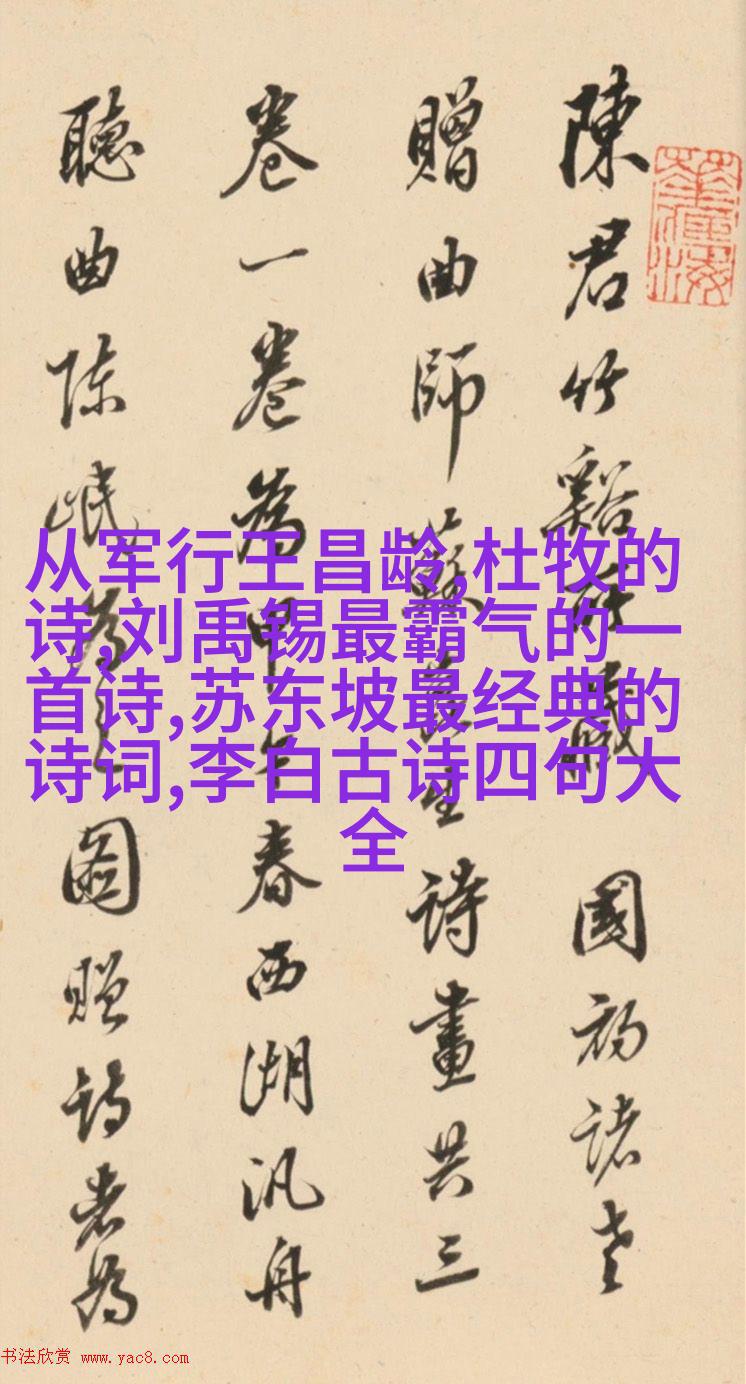 陳君竹谿所藏 國初諸老
贈曲師蘇崑生詩畫共三
卷一卷為甲午春西湖汎舟
聽曲陳岷為之圖贈詩者為
从军行王昌龄,杜牧的
诗,刘禹锡最霸气的一
首诗,苏东坡最经典的
诗词,李白古诗四句大
全
书法欣赏 www.yac8.com